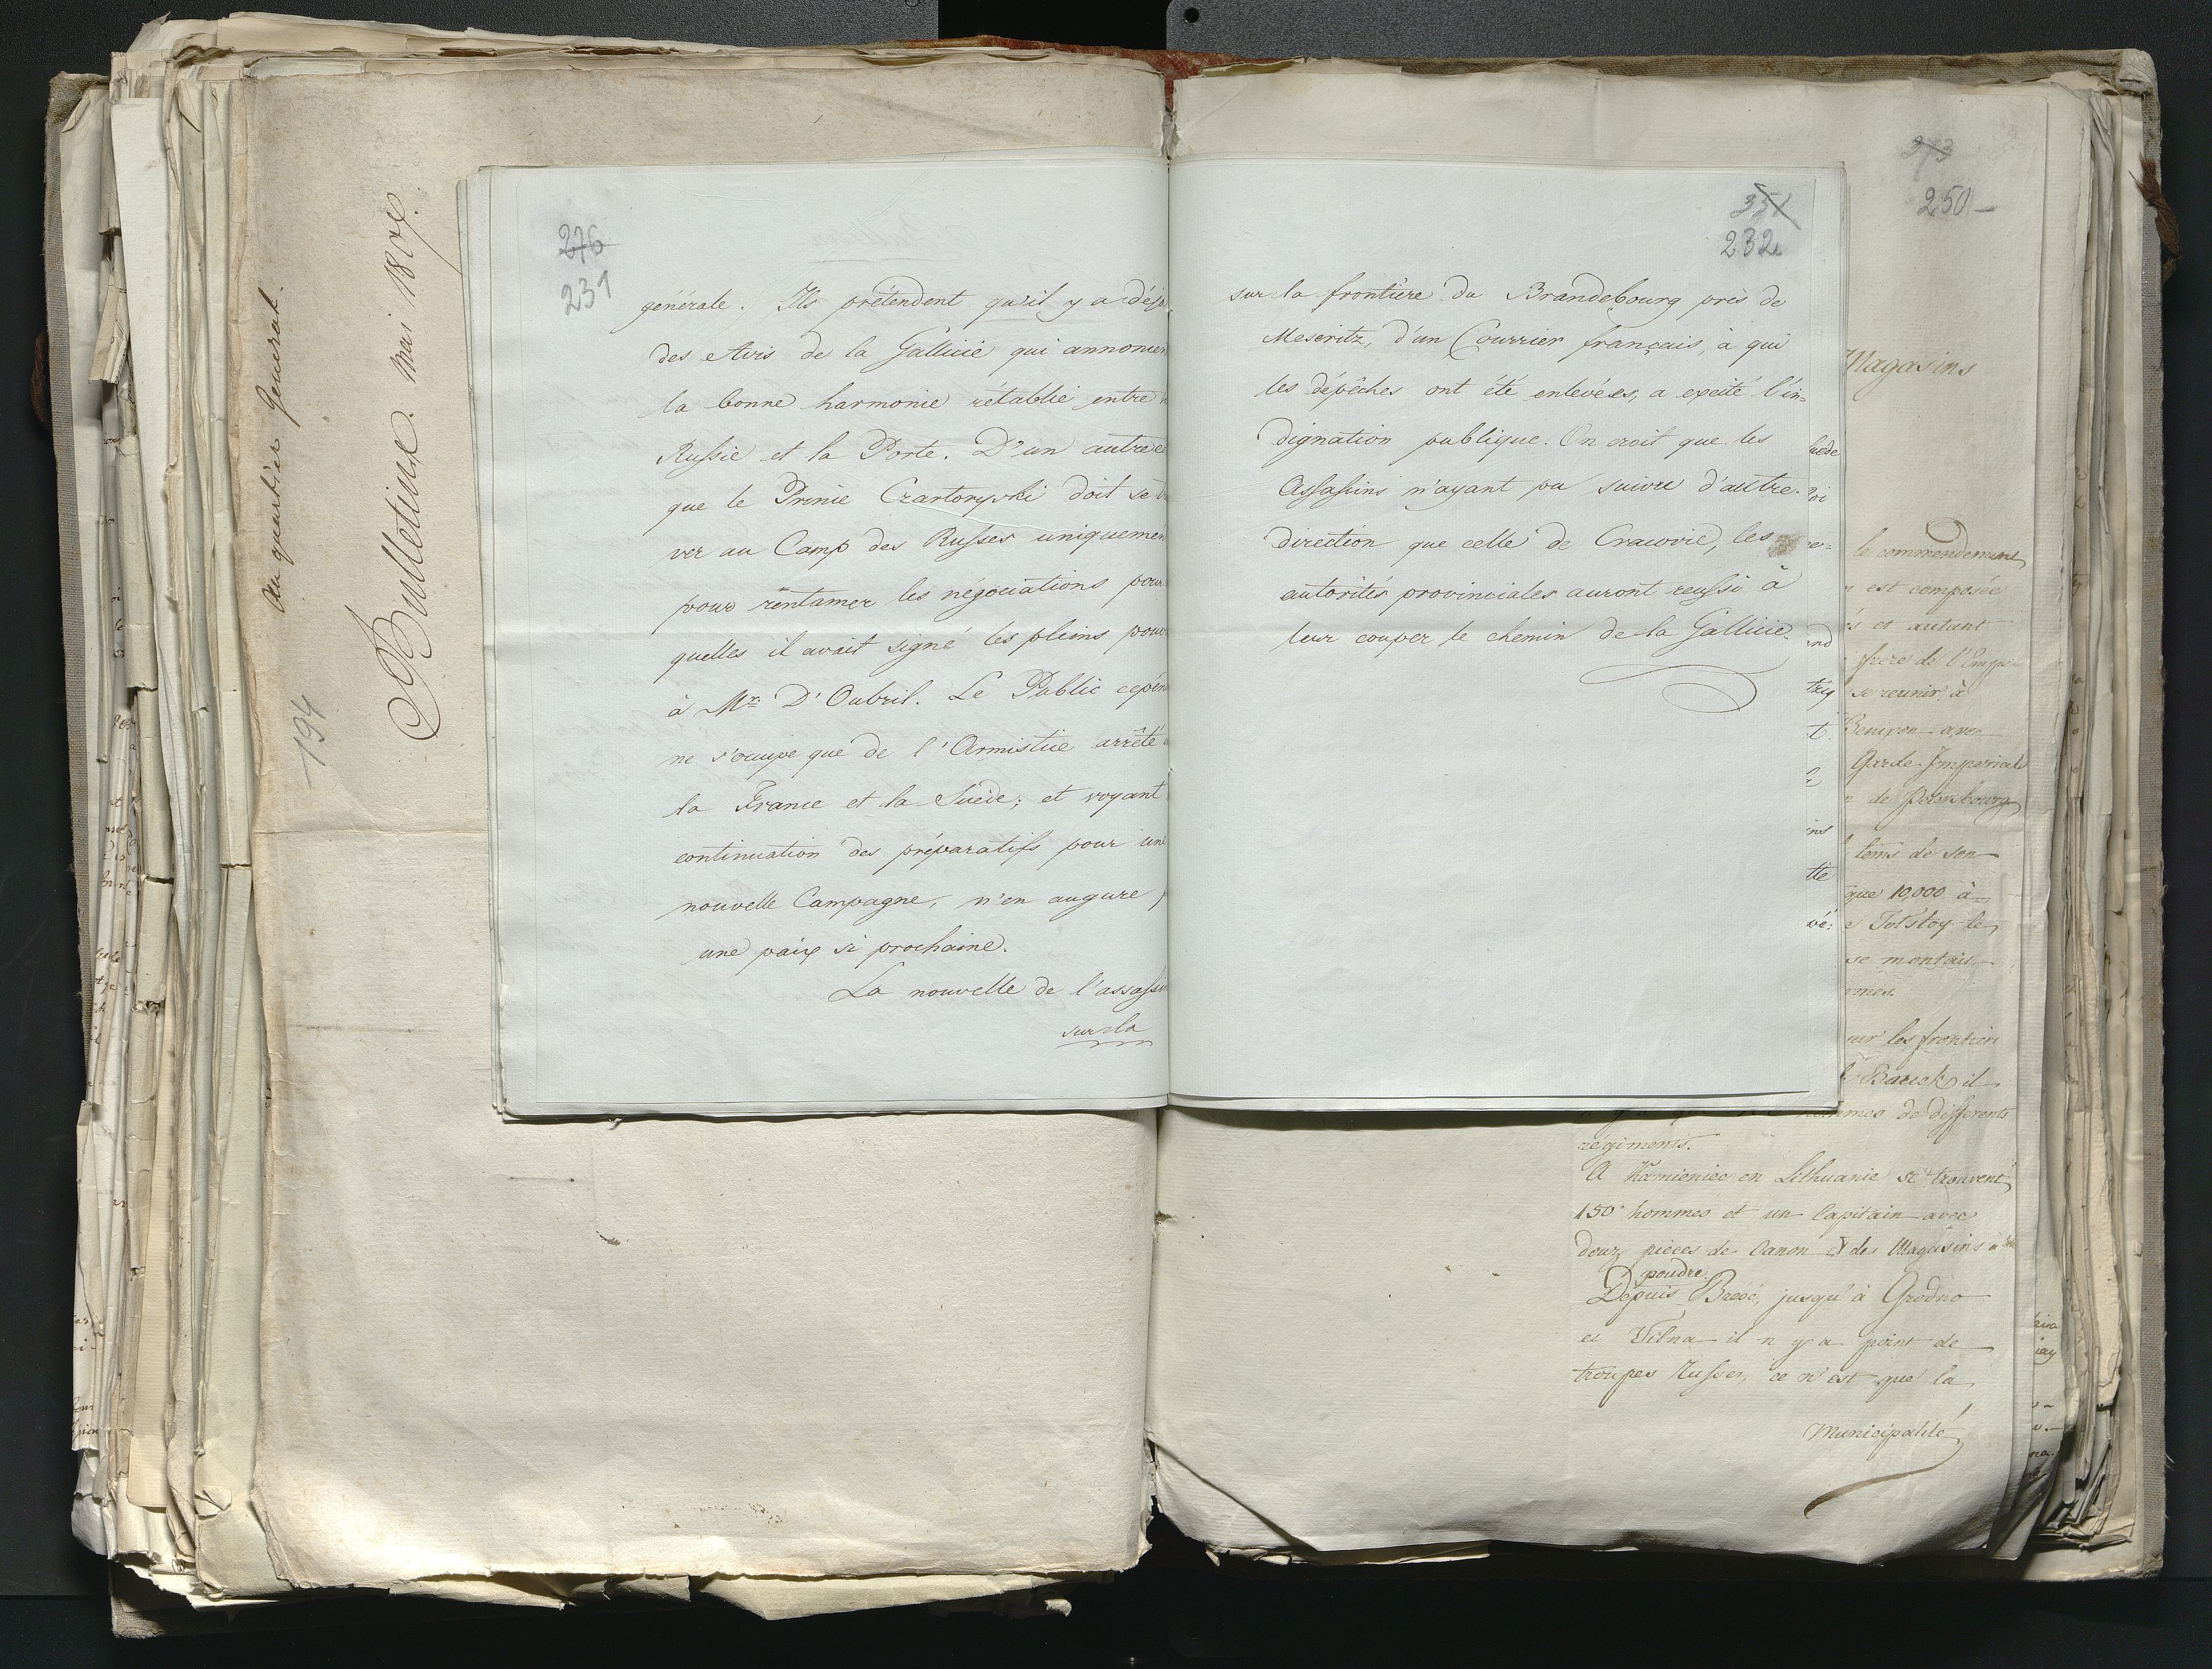 Au quartier General.
Bulletine. mai 1807.
194
276
231
générale. Ils prétendent qu'il y a déja
des Avis de la Gallicie qui annoncen
la bonne harmonie rétablie entre
Russie et la Porte. D'un autre
que le Prince Czartoryski doit se
ver au Camp des Russes uniquemen
pour rentamer les négociations pour
quelles il avait signé les pleins pouv
à Mr. D'Oubril. Le Public cepen
ne s'occupe que de l'Armistice arrêté
la France et la Suède; et voyant
continuation des préparatifs pour une
nouvelle Campagne, n'en augure
une paix si prochaine.
La nouvelle de l'assassin
sur la
351
232
sur la frontière du Brandebourg près de
Meseritz, d'un Courrier français, à qui
les dépêches ont été enlevées, a excité l'in=
dignation publique. On croit que les
Assassins n'ayant pu suivre d'autre
direction que celle de Cracovie, les
autorités provinciales auront reussi à
leur couper le chemin de la Gallicie.
273
250
Magasins
le commendement
est composée
et autant
frere de l'Empe
se reunir à
avec
Garde Imperiale
de Petersbourg
tems de son
que 10,000 à
Tolstoy le
se montais
mes.
sur les frontieri
il
hommes de differents
regiments.
A Kamieniec en Lithuanie se trouvent
150 hommes et un Capitain avec
deux pièces de Canon & des Magasins a
poudre.
Depuis Brésc, jusqu'à Grodno
et Vilna il n'y a point de
troupes Russes, ce n'est que la
Municipalité